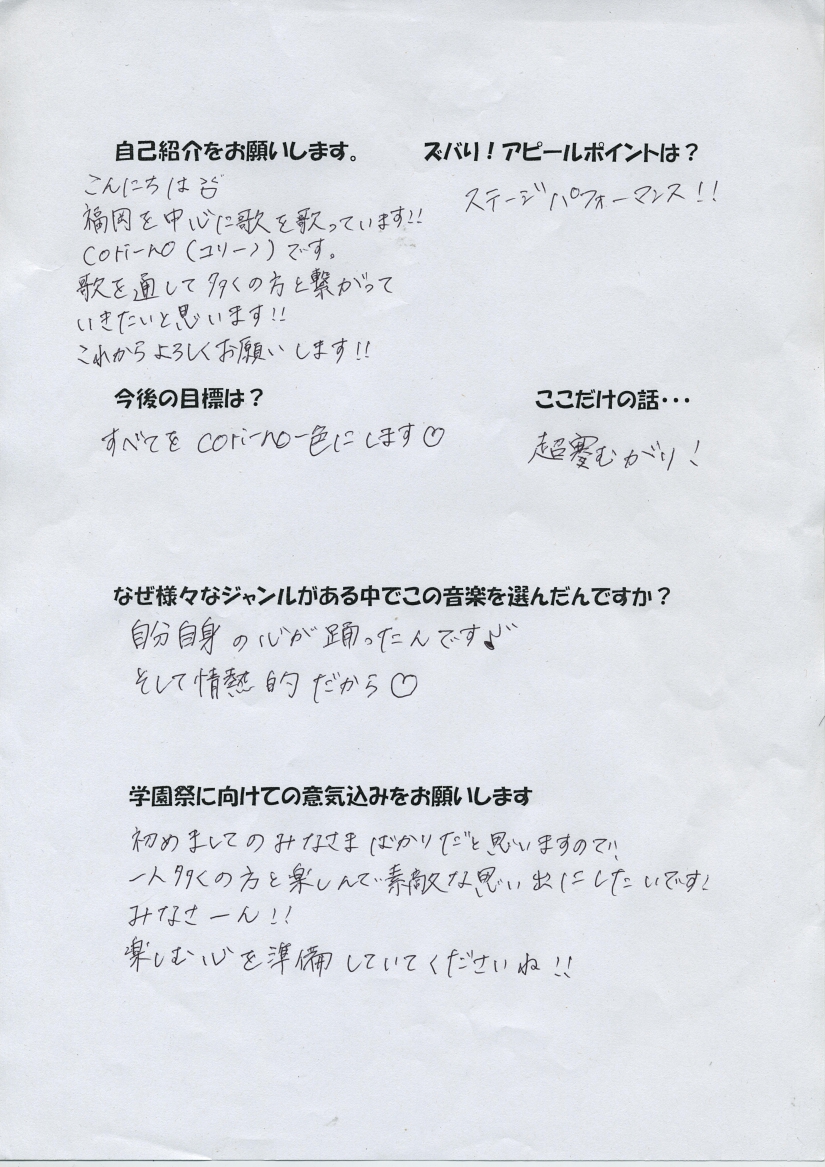 自己紹介をお願いします。
こんにちは
福岡を中心に歌を歌っています!!
cori-no(コリーノ)です。
歌を通して多くの方と繋がって
いきたいと思います!!
これからよろしくお願いします!!
ズバリ!アピールポイントは?
ステージパフォーマンス!!
今後の目標は?
すべてをcori-no一色にします♡
ここだけの話・・・
超寒むがり!
なぜ様々なジャンルがある中でこの音楽を選んだんですか?
自分自身の心が踊ったんです♪
そして情熱的だから♡
学園祭に向けての意気込みをお願いします
初めましてのみなさまばかりだと思いますので!
一人多くの方と楽しんで素敵な思い出にしたいです!
みなさーん!!
楽しむ心を準備していてくださいね!!